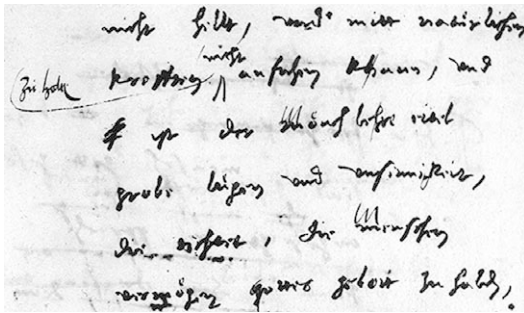 nicht hillt, und mitt natürlichen
krefften nicht an fahen khann, und
ist der Mönch lehre eitel
grobe lügen und unsinnikeit,
die, die Menschen
vermögen gottes gebott zu